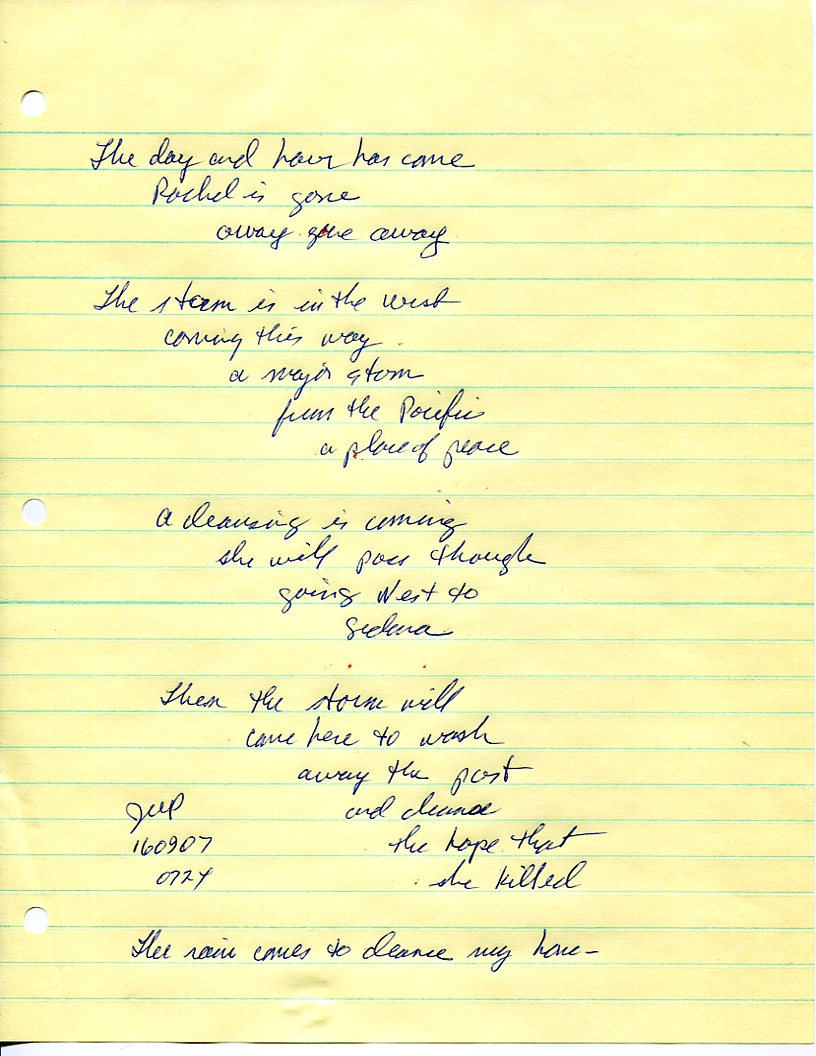 The day and hour has come
Rachel is gone
away gone away
The storm is in the west
coming this way
a major storm
from the Pacific
a place of peace
A cleansing is coming
she will pass though
going West to
Sedona
Then the storm will
come here to wash
away the past
and cleanse
JWP
160907
0724
the hope that
she killed
The rain comes to cleanse my